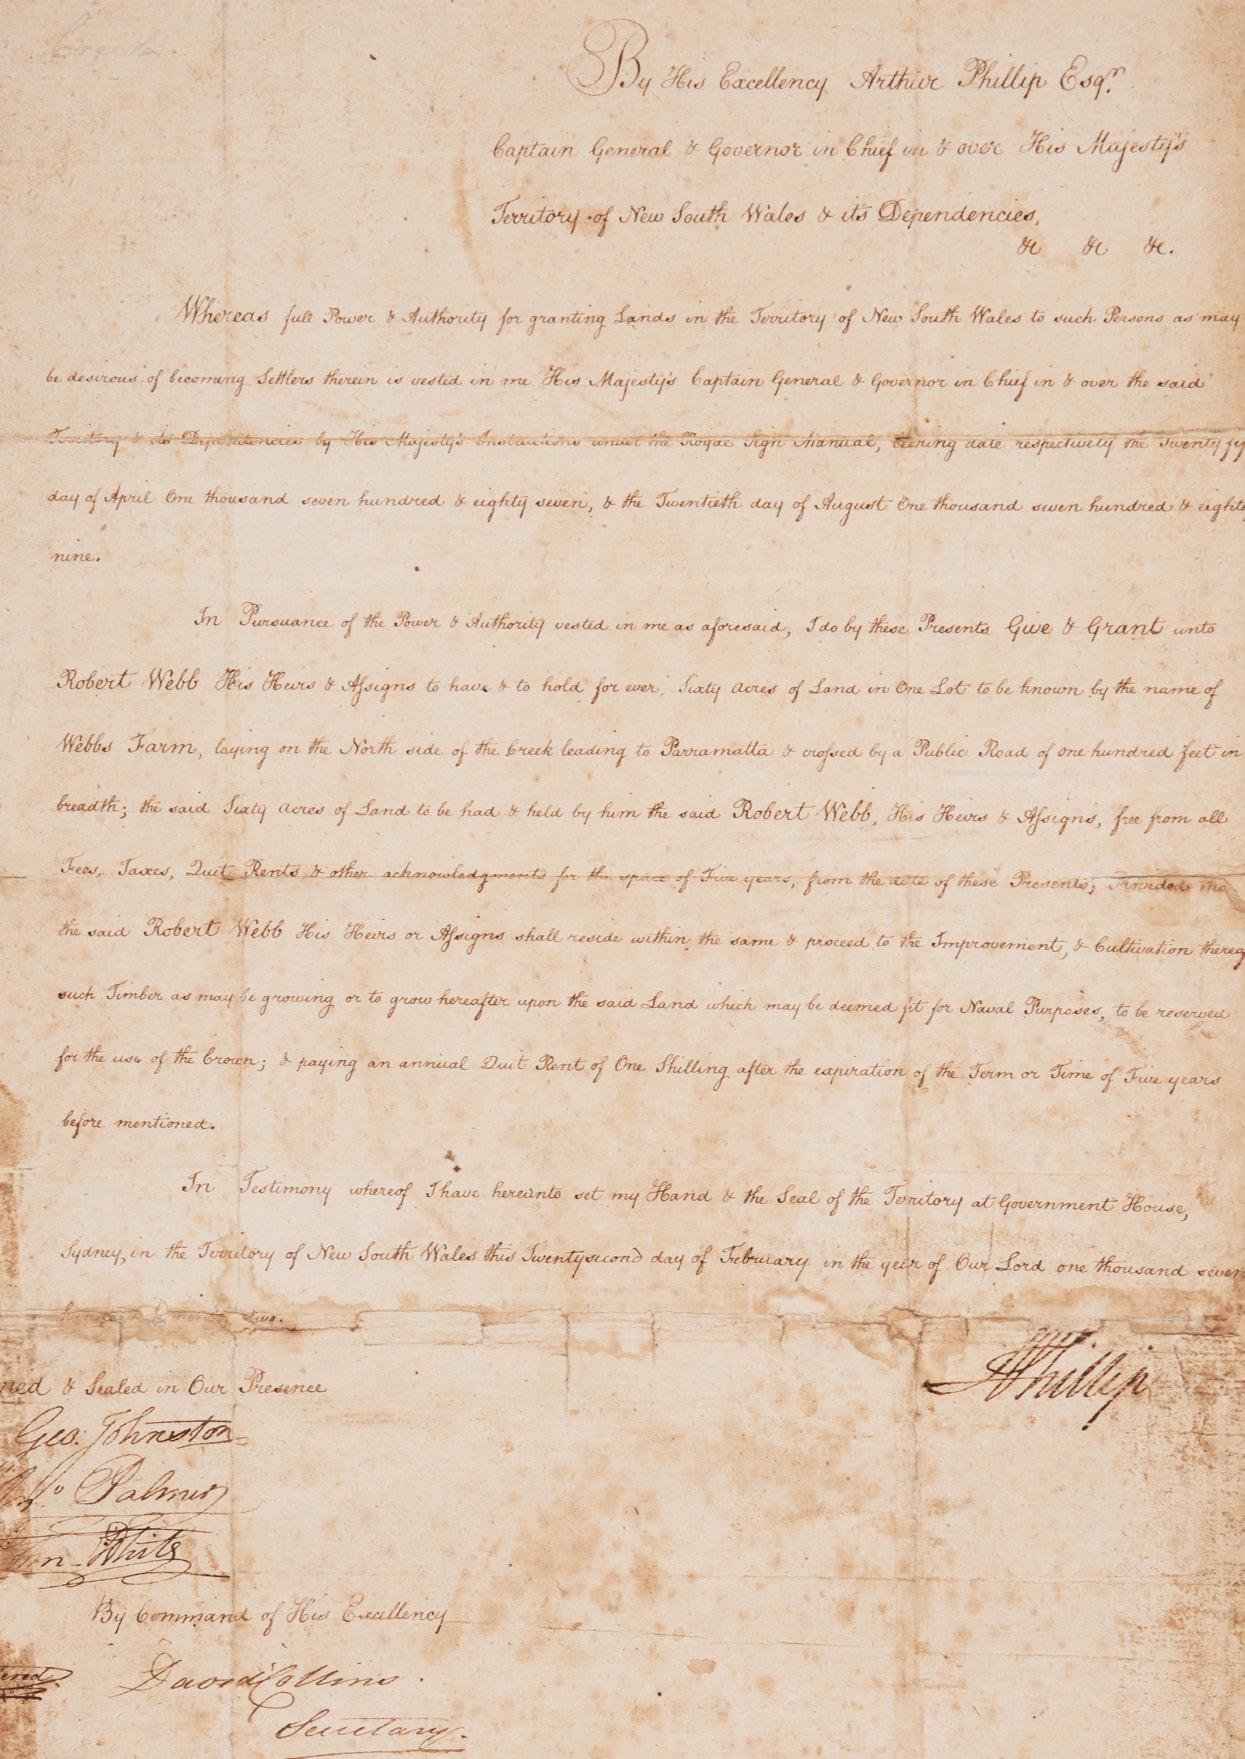 By His Excellency Arthur Phillip Esqr.
Captain General & Governor in Chief in & over His Majesty's
Territory of New South Wales & its Dependencies,
&c &c &c.
Whereas full Power & Authority for granting Lands in the Territory of New South Wales to such Persons as may
be desirous of becoming Settlers therein is vested in me His Majesty's Captain General & Governor in Chief in & over the said
Territory & its Dependencies by His Majesty's Instructions under the Royal Sign Manual, bearing date respectively the Twenty fif
day of April One thousand seven hundred & eighty seven, & the Twentieth day of August One thousand seven hundred & eighty
nine.
In Pursuance of the Power & Authority vested in me as aforesaid, I do by these Presents Give & Grant unto
Robert Webb His Heirs & Assigns to have & to hold for ever, Sixty Acres of Land in One Lot to be known by the name of
Webbs Farm, laying on the North side of the Creek leading to Parramatta & crossed by a Public Road of one hundred feet in
breadth; the said Sixty Acres of Land to be had & held by him the said Robert Webb, His Heirs & Assigns, free from all
Fees, Taxes, Quit Rents & other acknowledgments for the space of Five years, from the date of these Presents; Provided tha
the said Robert Webb His Heirs or Assigns shall reside within the same & proceed to the Improvement, & Cultivation thereof
such Timber as may be growing or to grow hereafter upon the said Land which may be deemed fit for Naval Purposes, to be reserved
for the use of the Crown; & paying an annual Quit Rent of One Shilling after the expiration of the Term or Time of Five years
before mentioned.
In Testimony whereof I have hereunto set my Hand & the Seal of the Territory at Government House,
Sydney, in the Territory of New South Wales this Twentysecond day of February in the year of Our Lord one thousand seven
hundred & ninety two.
ned & Sealed in Our Presence
A Phillip
Geo. Johnston
Jno Palmer
Jno White
By Command of His Excellency
David Collins
Secretary.